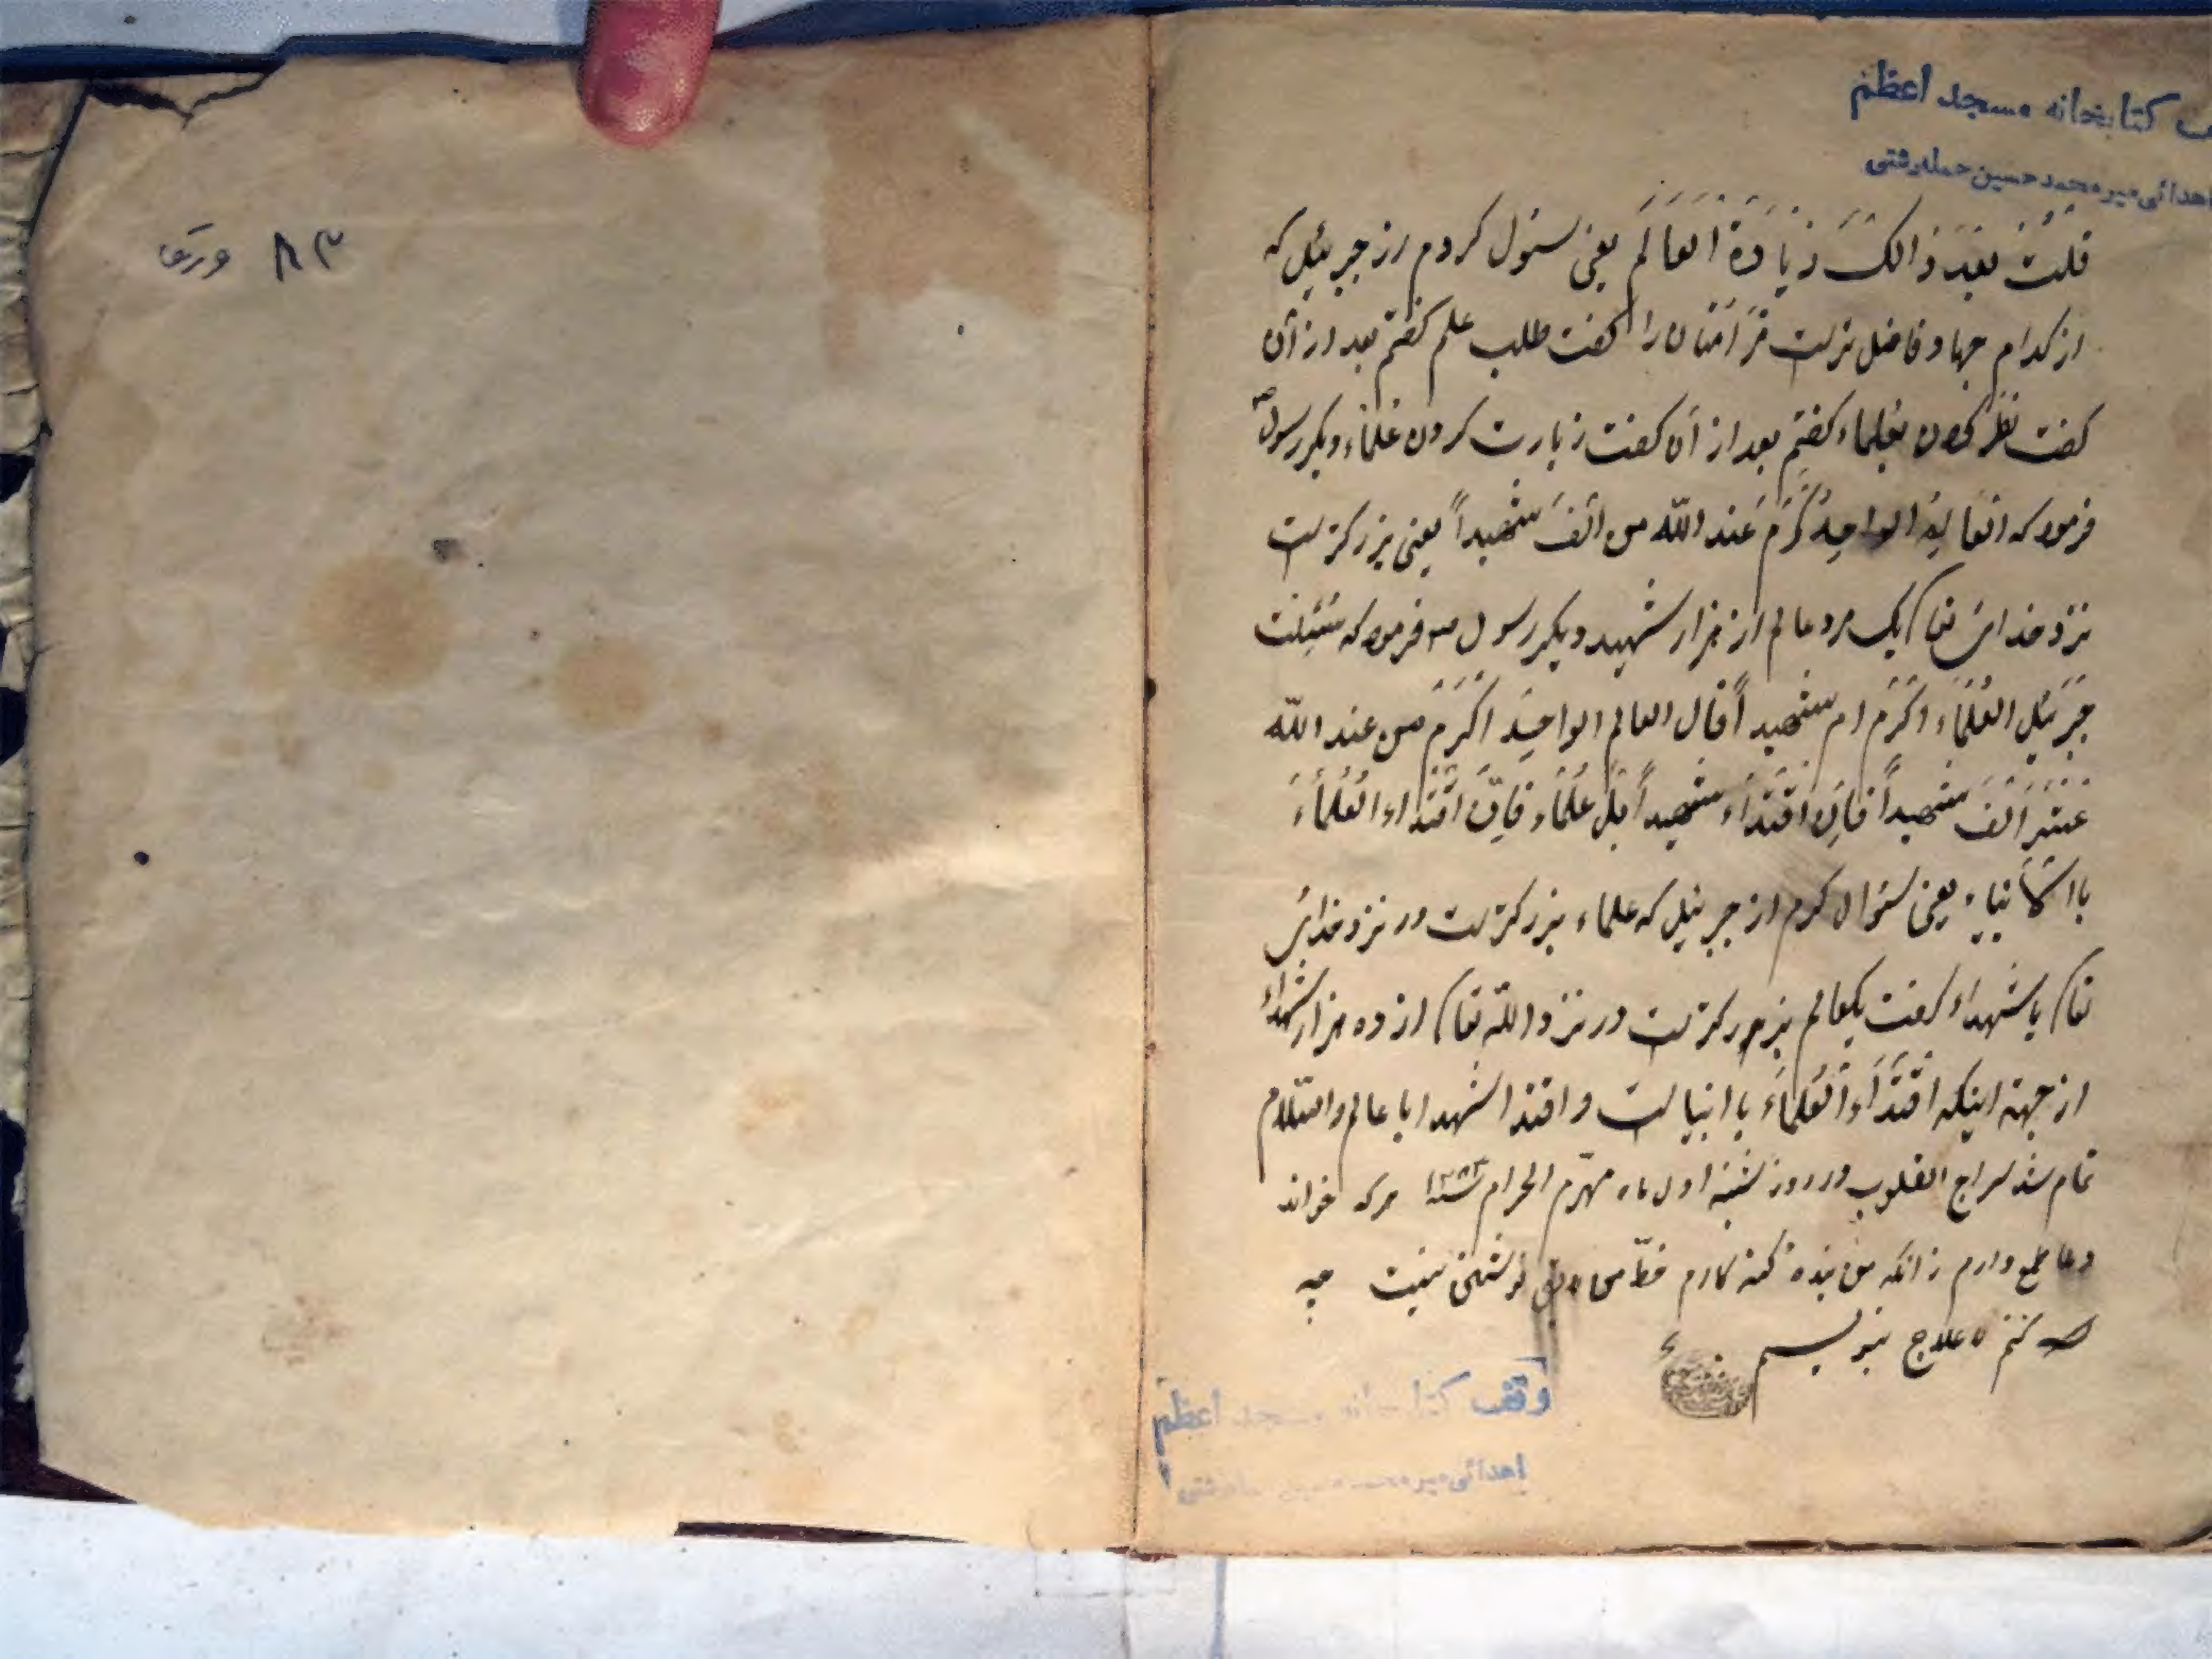 کتابخانه مسجد اعظم
اهدائی میر محمد حسین
قلت بعد ذالک زیادة العالم یعنی سئول کردم از جبرئیل که
از کدام جهاد فاضل تر است مر امتان را گفت طلب علم گفتم بعد از آن
گفت نظر کردن بعلماء گفتم بعد از آن گفت زیارت کردن علماء دیگر رسول ص
فرمود که العالم الواحد کرم عند الله من الف شهیداً یعنی بزرکتر است
نزد خدای تعا یک مرد عالم از هزار شهید دیگر رسول ص فرمود که سئیلت
جبرئیل العلماء اکرم ام شهیداً قال العالم الواحد اکرم من عند الله
عشر الف شهیداً فان اقتداء شهیداً بل علماء فان اقتداء العلماء
با انبیاء یعنی سئوال کردم از جبرئیل که علماء بزرکتر است در نزد خدای
تعا یا شهداء گفت یکعالم بزرکتر است در نزد الله تعا از ده هزار شهداء
از جهة اینکه اقتداء العلماء با انبیا است و اقتدا شهدا با عالم والسلام
تمام شد سراج القلوب در روز شنبه اول ماه مهرّم الحرام هر که خواند
دعا طمع دارم زانکه من بنده گنه کارم خطّ من نوشتنی نیست چه
کنم علاج بنویسم
وقف کتابخانه مسجد اعظم
اهدائی میر محمد حسین
۸۳ ورق